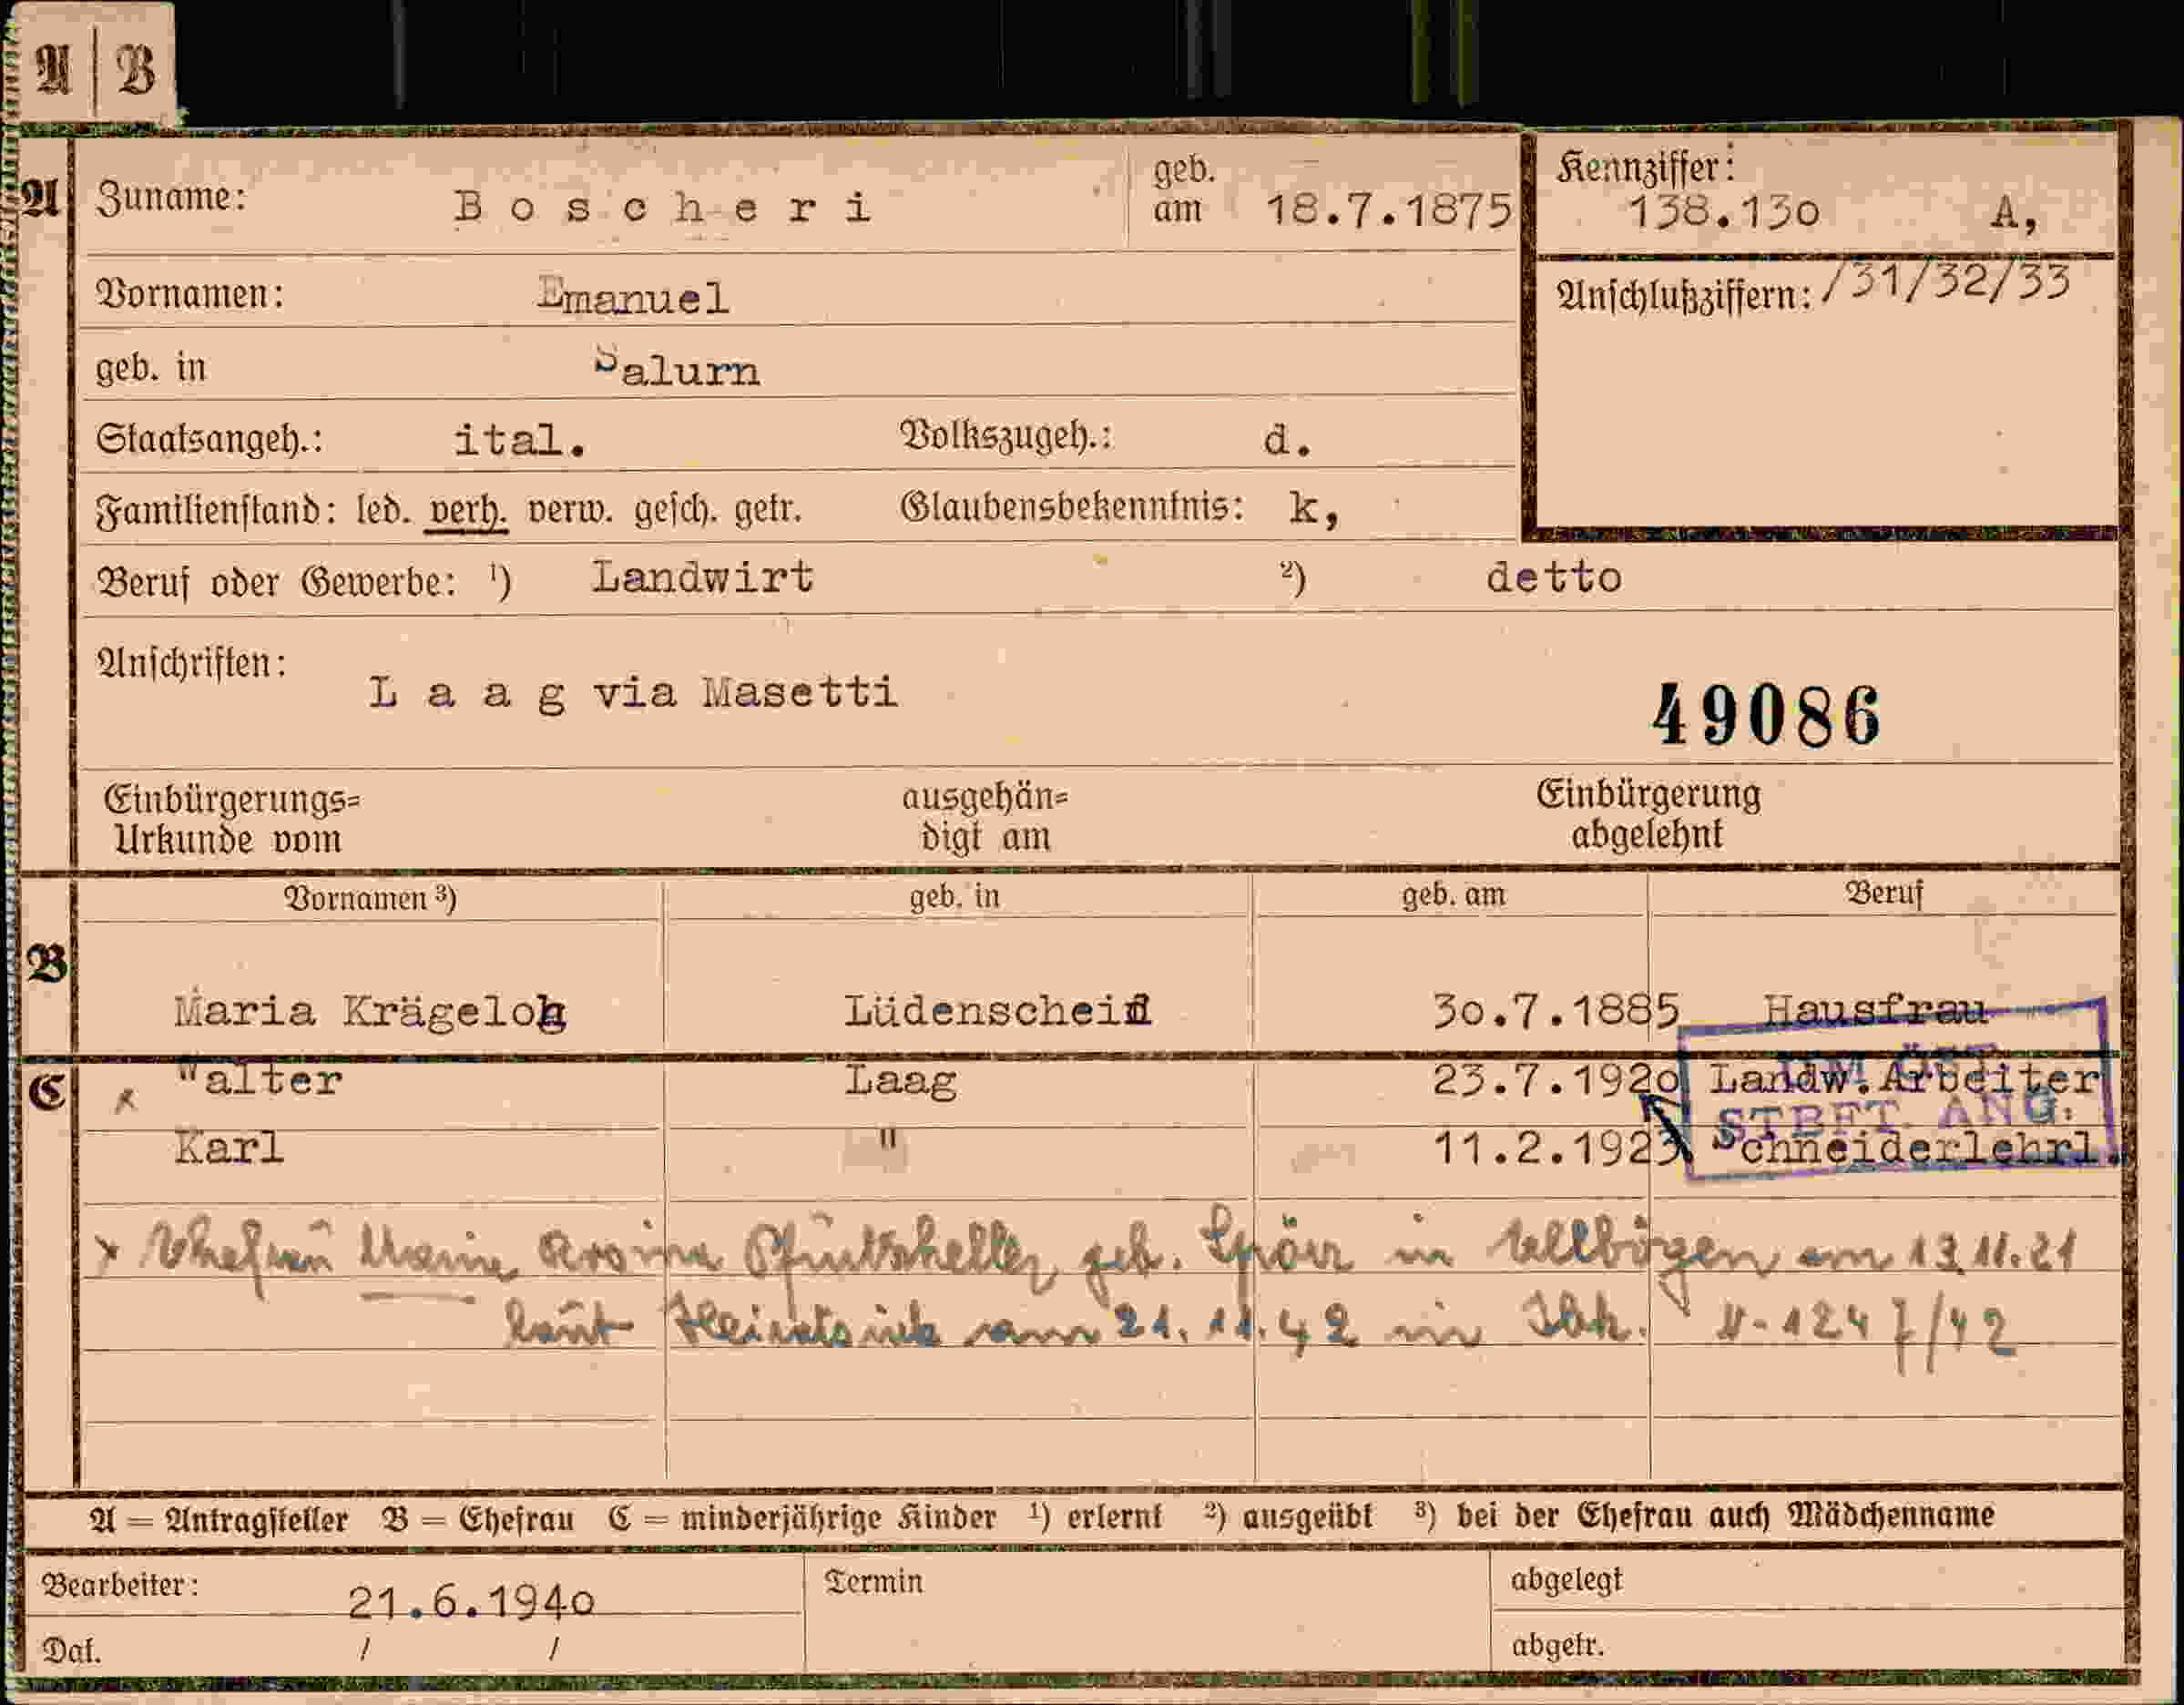 A | B
A Zuname: Boscheri geb. am 18.7.1875 Kennziffer: 138.130 A,
Vornamen: Emanuel Anschlußziffern: /31/32/33
geb. in Salurn
Staatsangeh.: ital. Volkszugeh.: d.
Familienstand: led. verh. verw. gesch. getr. Glaubensbekenntnis: k,
Beruf oder Gewerbe: ¹) Landwirt ²) detto
Anschriften: Laag via Masetti
49086
Einbürgerungs= ausgehän= Einbürgerung
Urkunde vom digt am abgelehnt
Vornamen ³) geb. in geb. am Beruf
B Maria Krägeloh Lüdenscheid 30.7.1885 Hausfrau
C x Walter Laag 23.7.1920 Landw.Arbeiter
STBFT. ANG.
Karl " 11.2.1923 Schneiderlehrl.
x Ehefrau Maria geb. Spörr in Ellbögen am 13.11.21
laut Heiratsurk vom 21.11.42 in Ibk. 1247/42
A = Antragsteller B = Ehefrau C = minderjährige Kinder ¹) erlernt ²) ausgeübt ³) bei der Ehefrau auch Mädchenname
Bearbeiter: 21.6.1940 Termin abgelegt
Dat. / / abgetr.